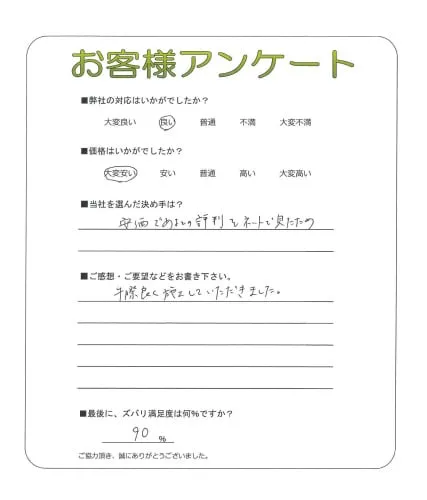 お客様アンケート
■弊社の対応はいかがでしたか？
大変良い 良い 普通 不満 大変不満
■価格はいかがでしたか？
大変安い 安い 普通 高い 大変高い
■当社を選んだ決め手は？
安価であるとの評判をネットで見たため
■ご感想・ご要望などをお書き下さい。
手際良く施工していただきました。
■最後に、ズバリ満足度は何%ですか？
90 %
ご協力頂き、誠にありがとうございました。